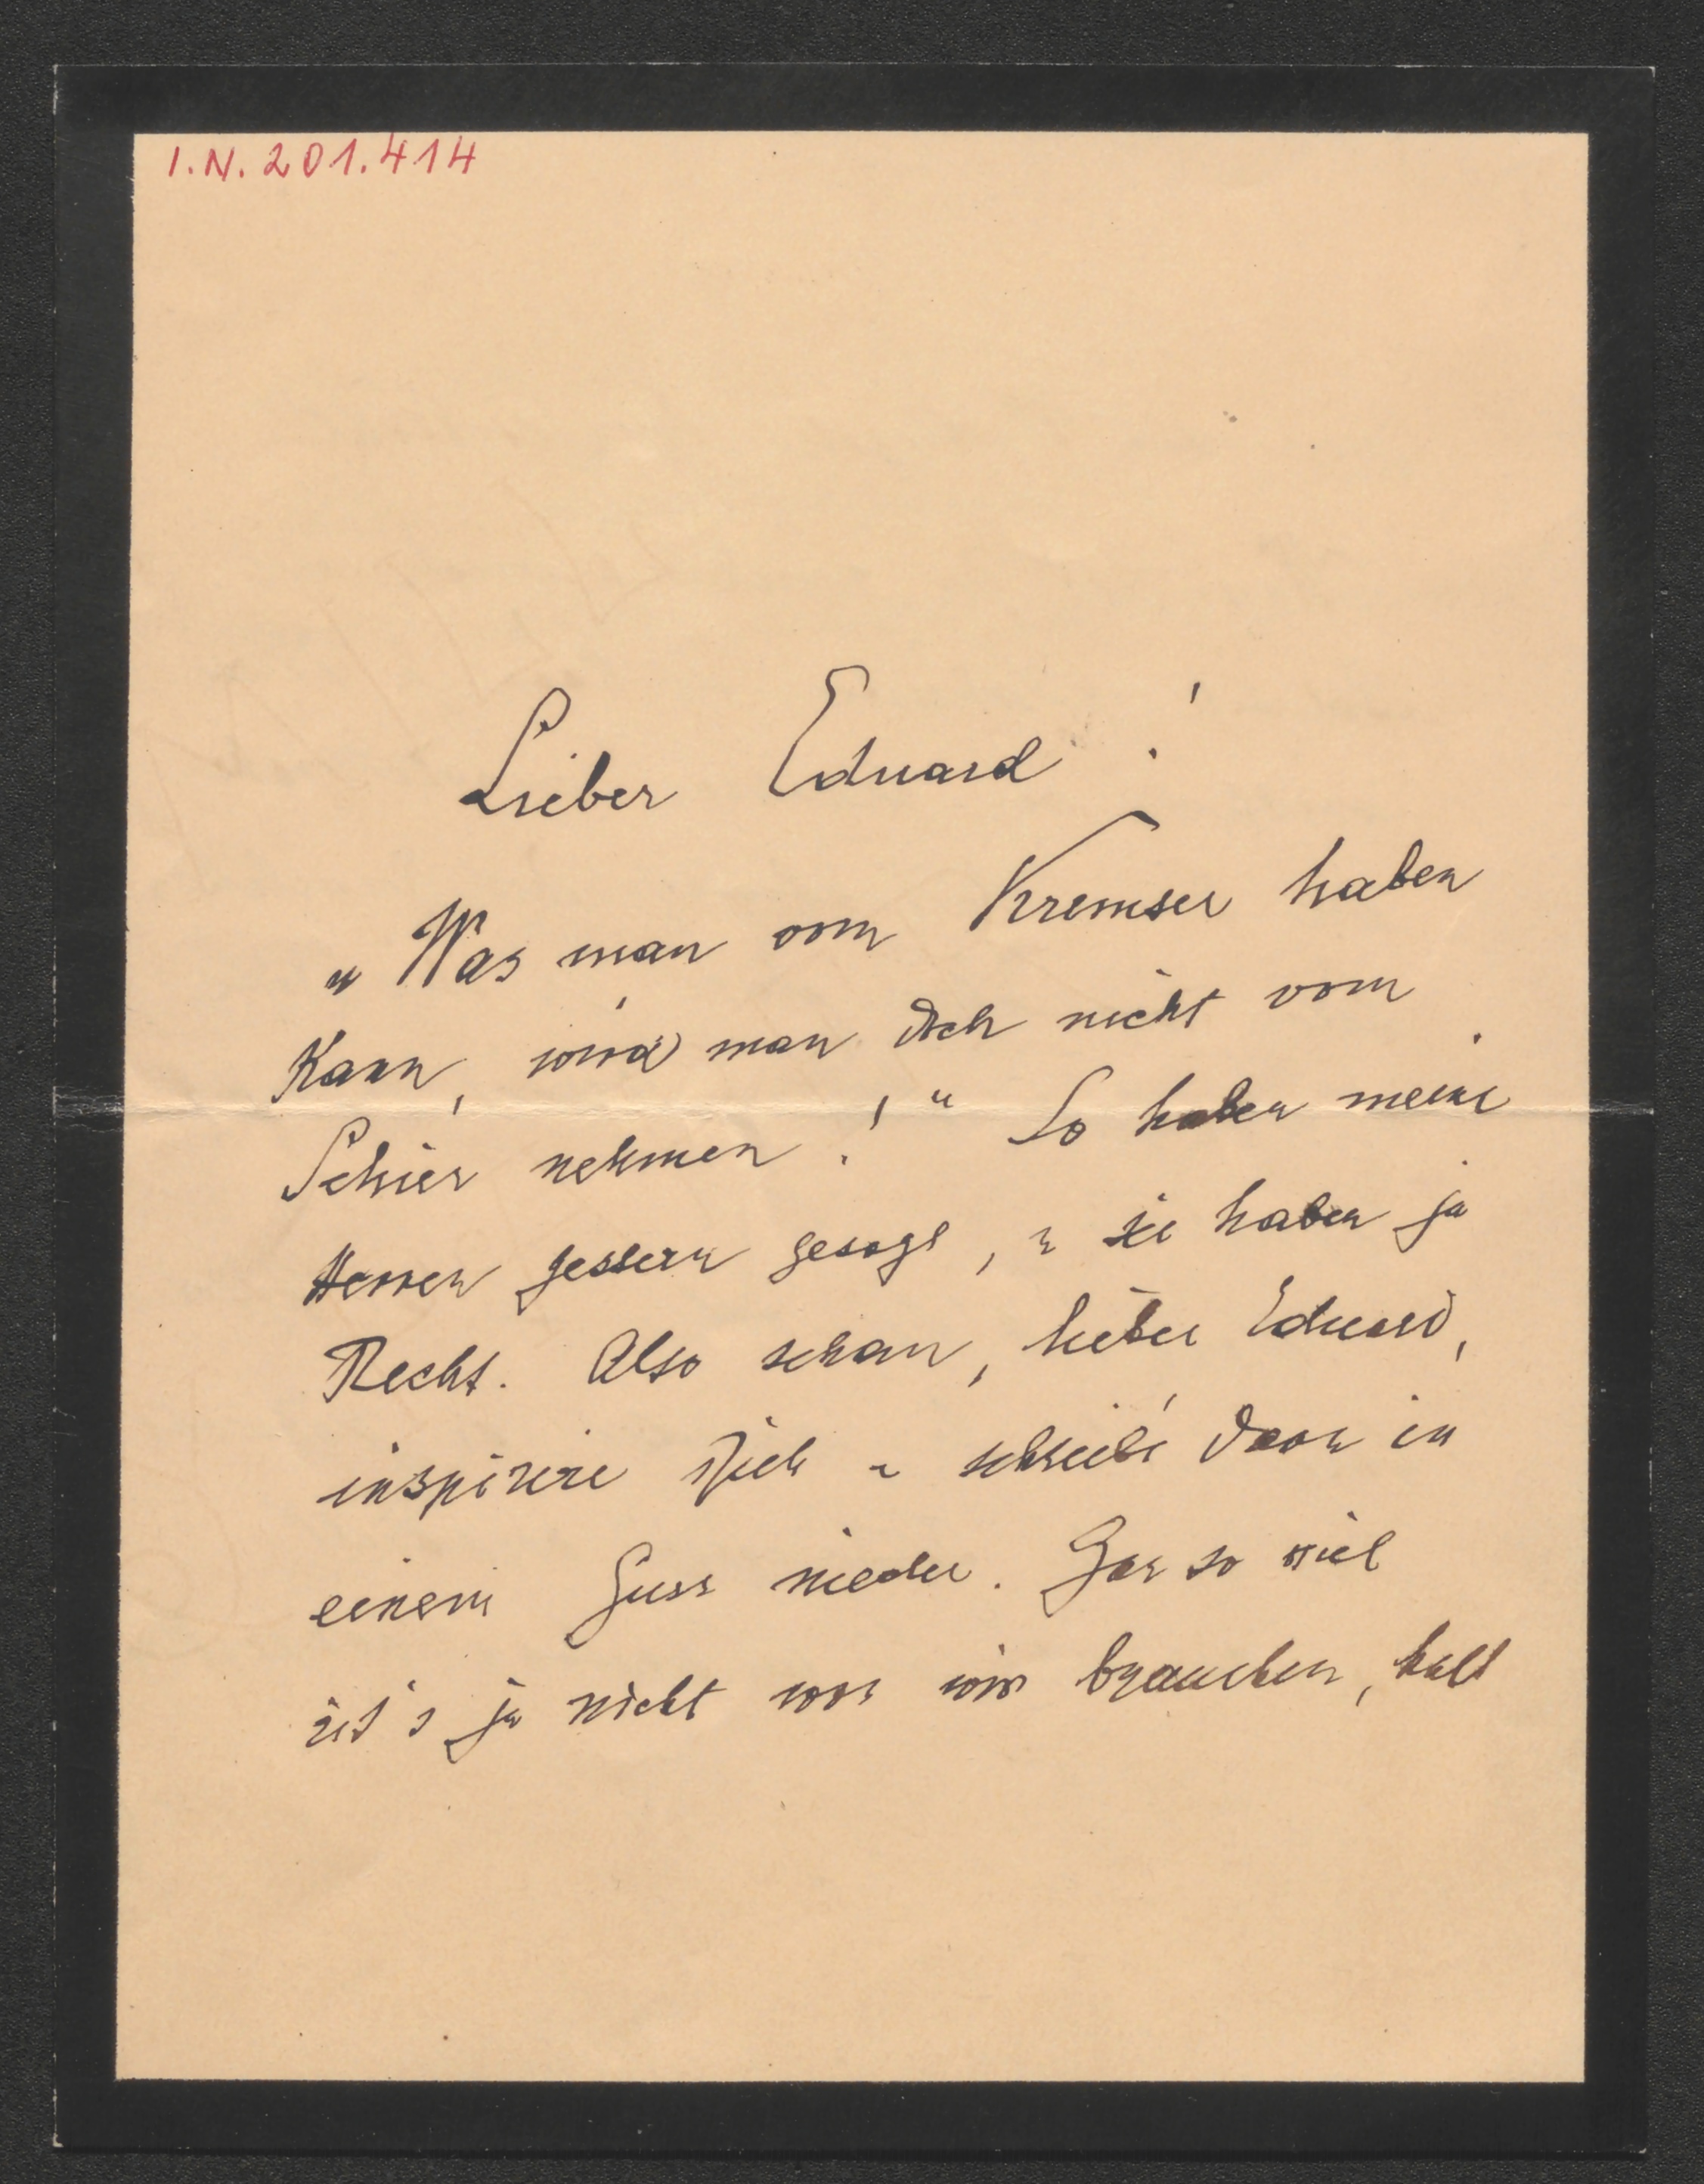 I.N. 201.414
Lieber Eduard!
„Was man vom Kremser haben
kann, wird man doch nicht vom
Schier nehmen!“ So haben meine
Herren gestern gesagt, u sie haben ja
Recht. Also schau, lieber Eduard,
inspirire Dich u schreib's dann in
einem Guss nieder. Gar so viel
ist's ja nicht was wir brauchen, halt